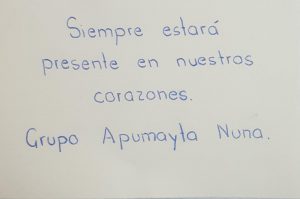 Siempre estará
presente en nuestros
corazones.
Grupo Apumayta Nuna.